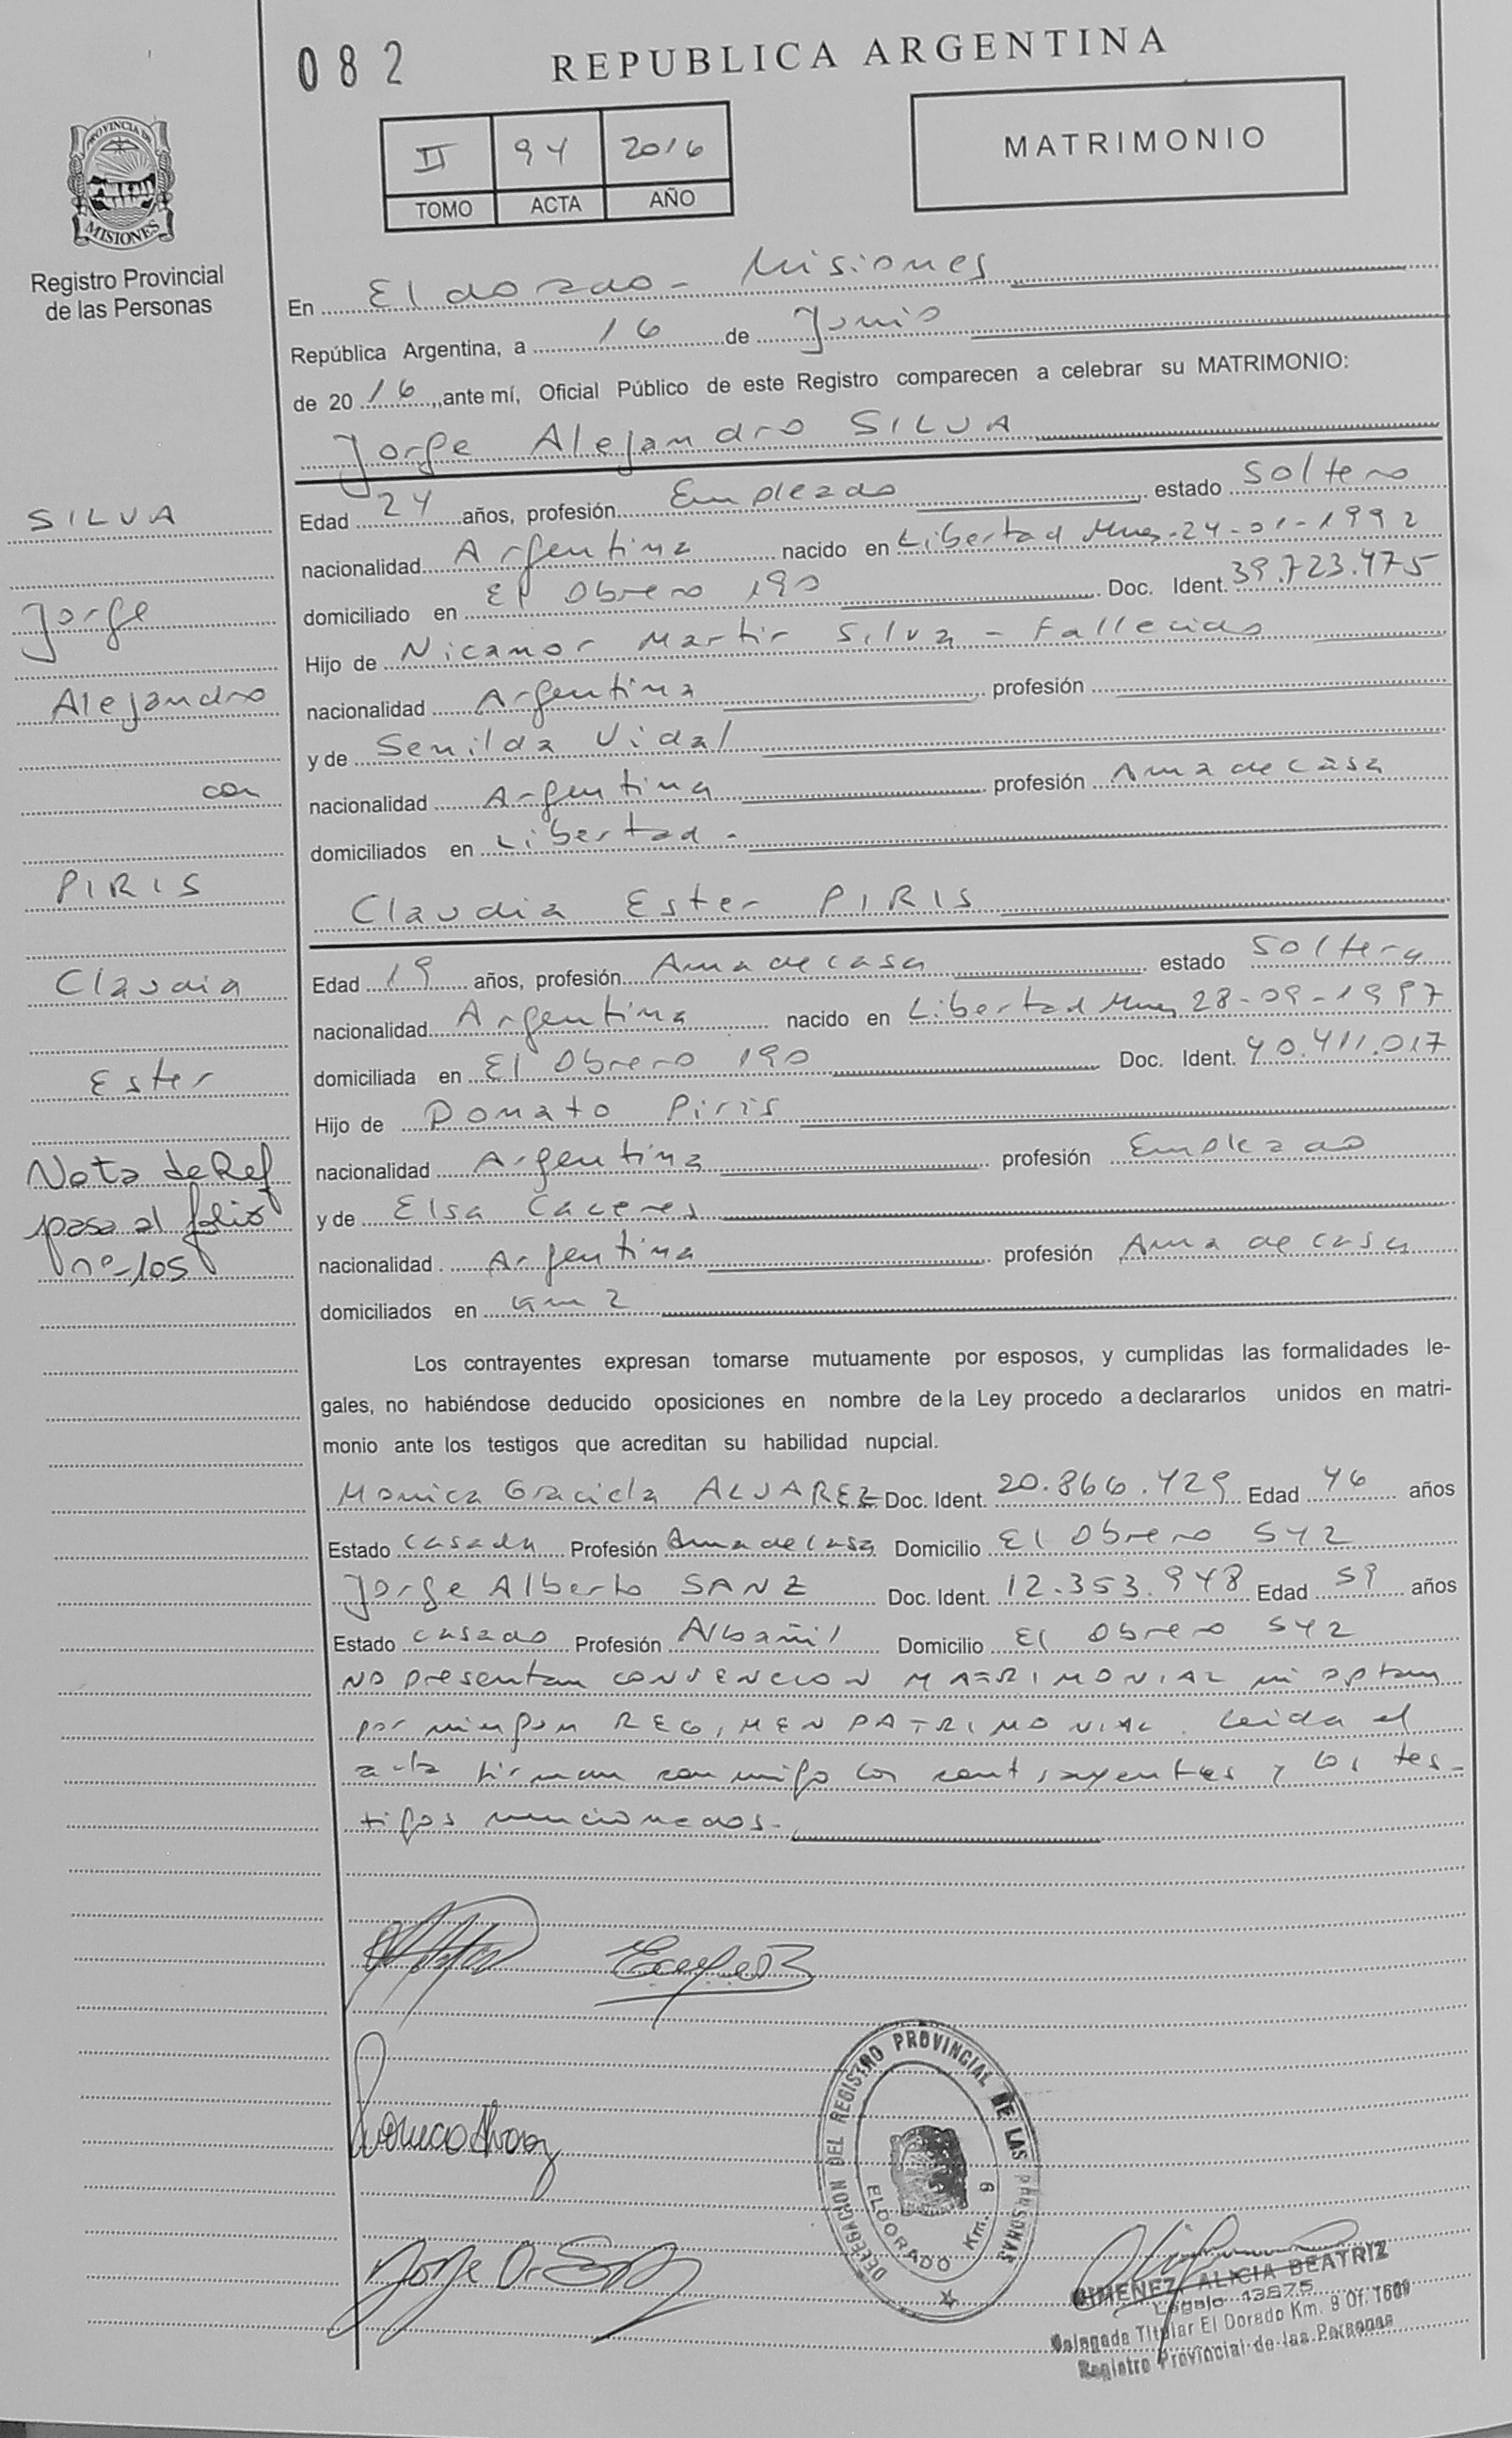 082
REPUBLICA ARGENTINA
II 94 2016
TOMO ACTA AÑO
MATRIMONIO
PROVINCIA DE
MISIONES
Registro Provincial
de las Personas
En Eldorado - Misiones
República Argentina, a 16 de Junio
de 2016, ante mí, Oficial Público de este Registro comparecen a celebrar su MATRIMONIO:
Jorge Alejandro SILVA
Edad 24 años, profesión Empleado estado Soltero
nacionalidad Argentina nacido en Libertad Mnes-24-01-1992
domiciliado en El Obrero 190 Doc. Ident. 39.723.475
Hijo de Nicanor Martir Silva - Fallecido
nacionalidad Argentina profesión
y de Senilda Vidal
nacionalidad Argentina profesión Ama de casa
domiciliados en Libertad -
Claudia Ester PIRIS
Edad 19 años, profesión Ama de casa estado Soltera
nacionalidad Argentina nacido en Libertad Mnes 28-09-1997
domiciliada en El Obrero 190 Doc. Ident. 40.411.017
Hijo de Donato Piris
nacionalidad Argentina profesión Empleado
y de Elsa Caceres
nacionalidad Argentina profesión Ama de casa
domiciliados en Km 2
Los contrayentes expresan tomarse mutuamente por esposos, y cumplidas las formalidades le-
gales, no habiéndose deducido oposiciones en nombre de la Ley procedo a declararlos unidos en matri-
monio ante los testigos que acreditan su habilidad nupcial.
Monica Graciela ALVAREZ Doc. Ident. 20.866.429 Edad 46 años
Estado casada Profesión Ama de casa Domicilio El Obrero 542
Jorge Alberto SANZ Doc. Ident. 12.353.948 Edad 59 años
Estado casado Profesión Albañil Domicilio El Obrero 542
NO presentan CONVENCION MATRIMONIAL ni optan
por ningun REGIMEN PATRIMONIAL. Leida el
acta firman conmigo los contrayentes y los tes-
tigos mencionados.-
SILVA
Jorge
Alejandro
con
PIRIS
Claudia
Ester
Nota de Ref
pasa al folio
nº-105
DELEGACION DEL REGISTRO PROVINCIAL DE LAS PERSONAS
ELDORADO Km. 9
GIMENEZ, ALICIA BEATRIZ
Legajo 13675
Delegada Titular El Dorado Km. 9 Of. 1609
Registro Provincial de las Personas